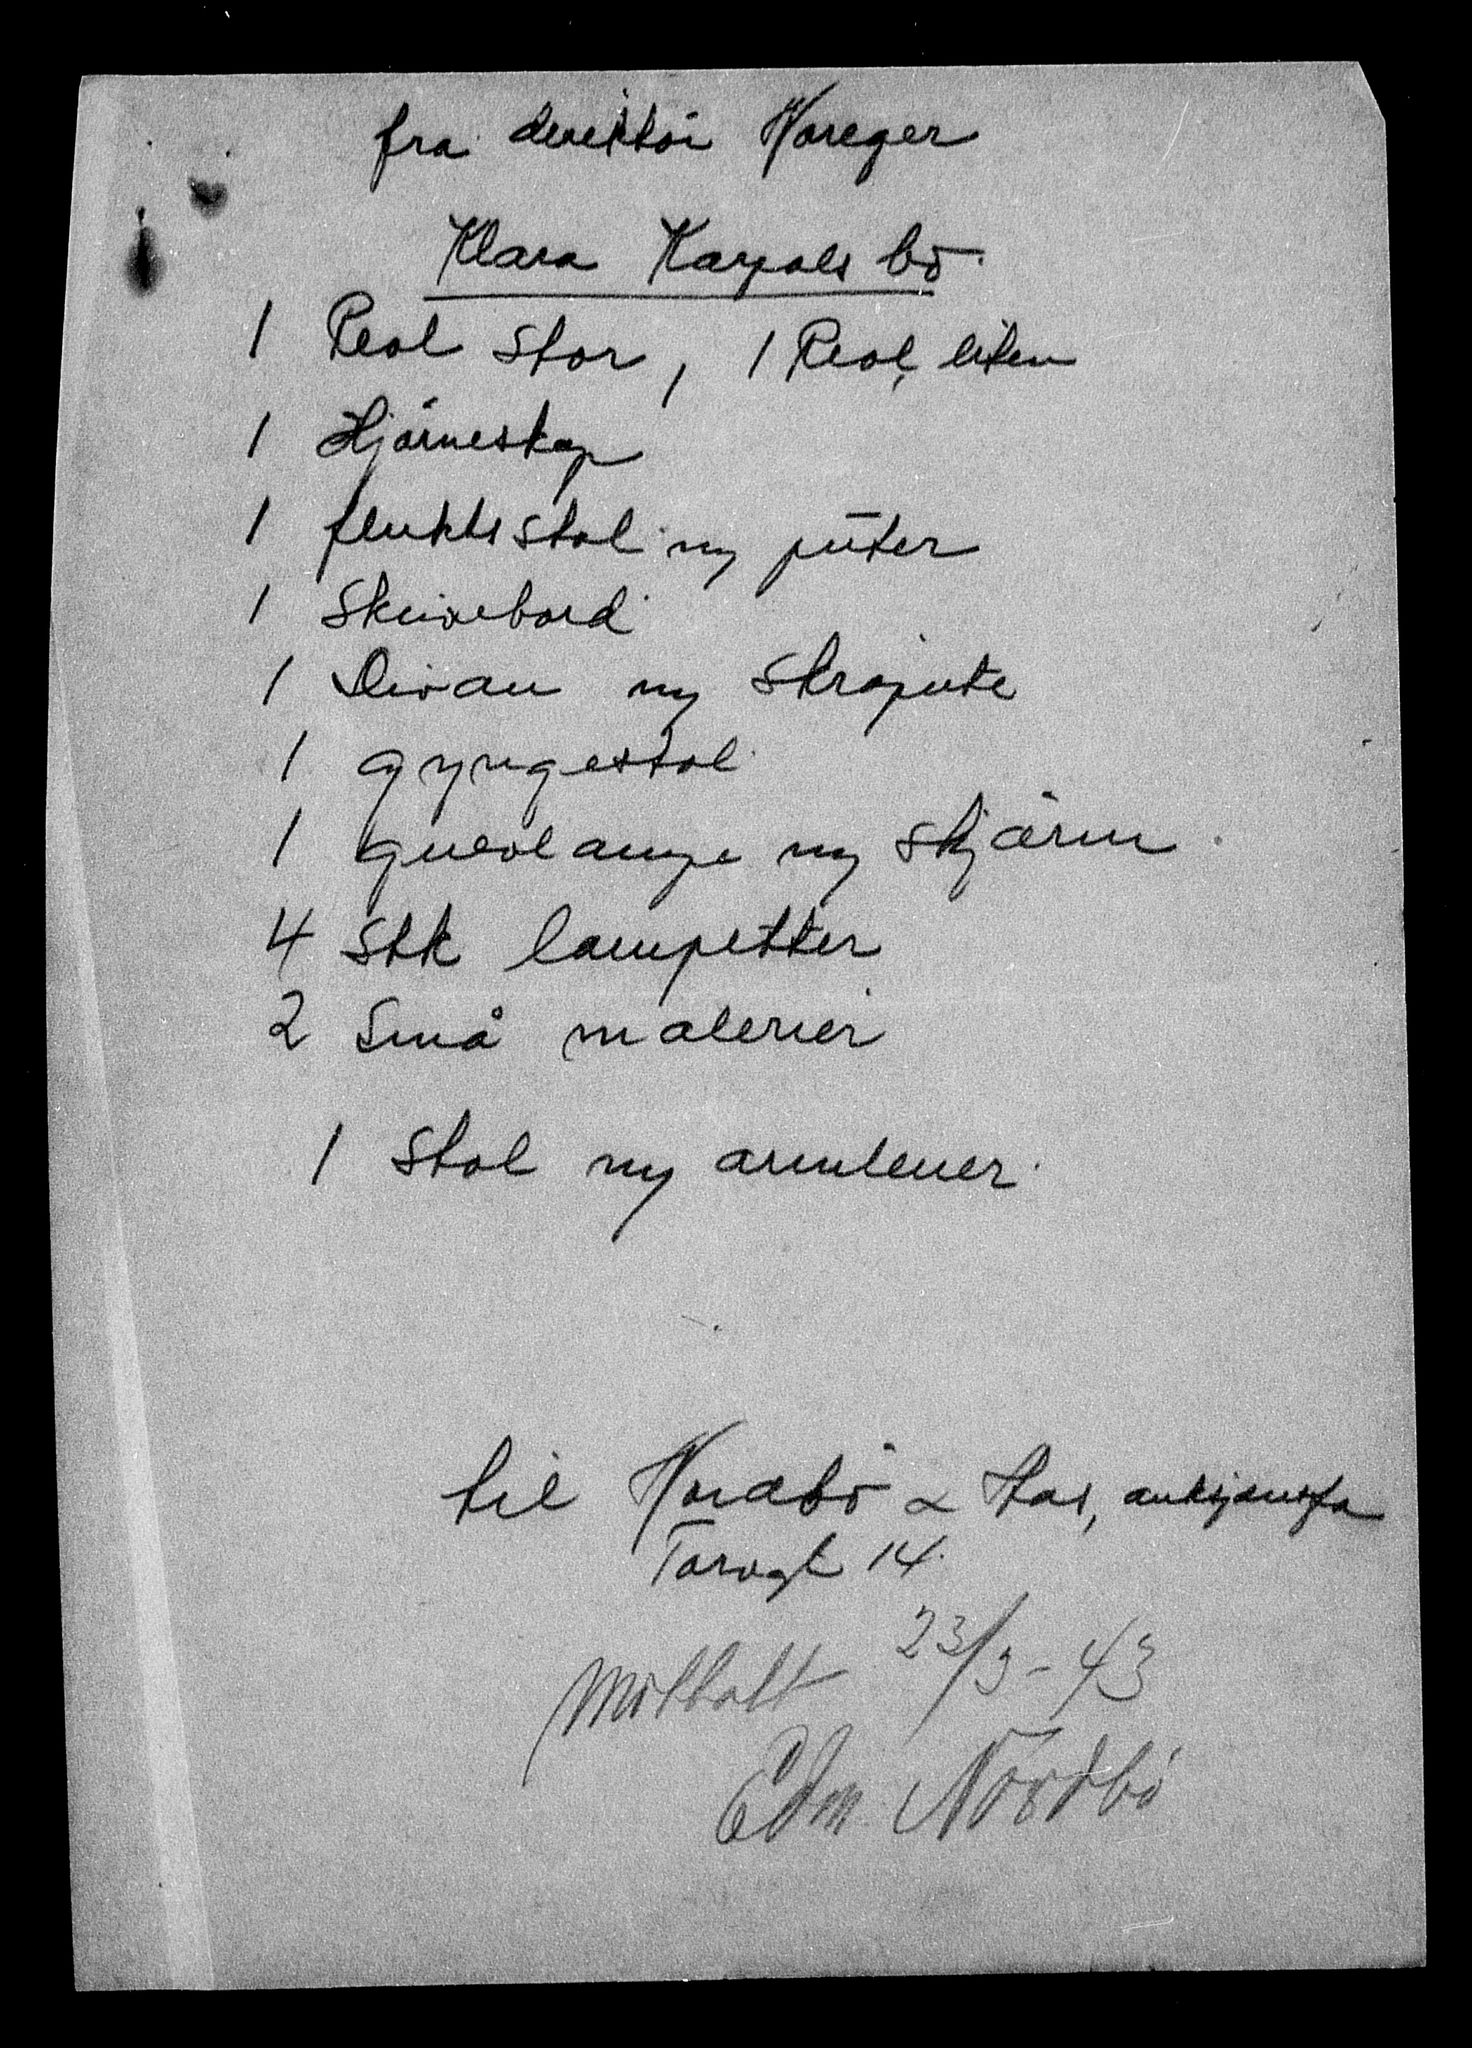 fra direktör Horeger
Klara Karpols bö.
1 Reol stor, 1 Reol, liten
1 Hjörneskap
1 fluktsstol m/ puter
1 Skrivebord
1 Divan m/ skråpute
1 gyngestol
1 gulvlampe m/ skjärm.
4 Stk lampetter
2 Små malerier
1 Stol m/ armlener.
til Nordbö & Aas, auksjonsfa
Torvgt 14.
Mottatt 23/3-43
Edm. Nordbö